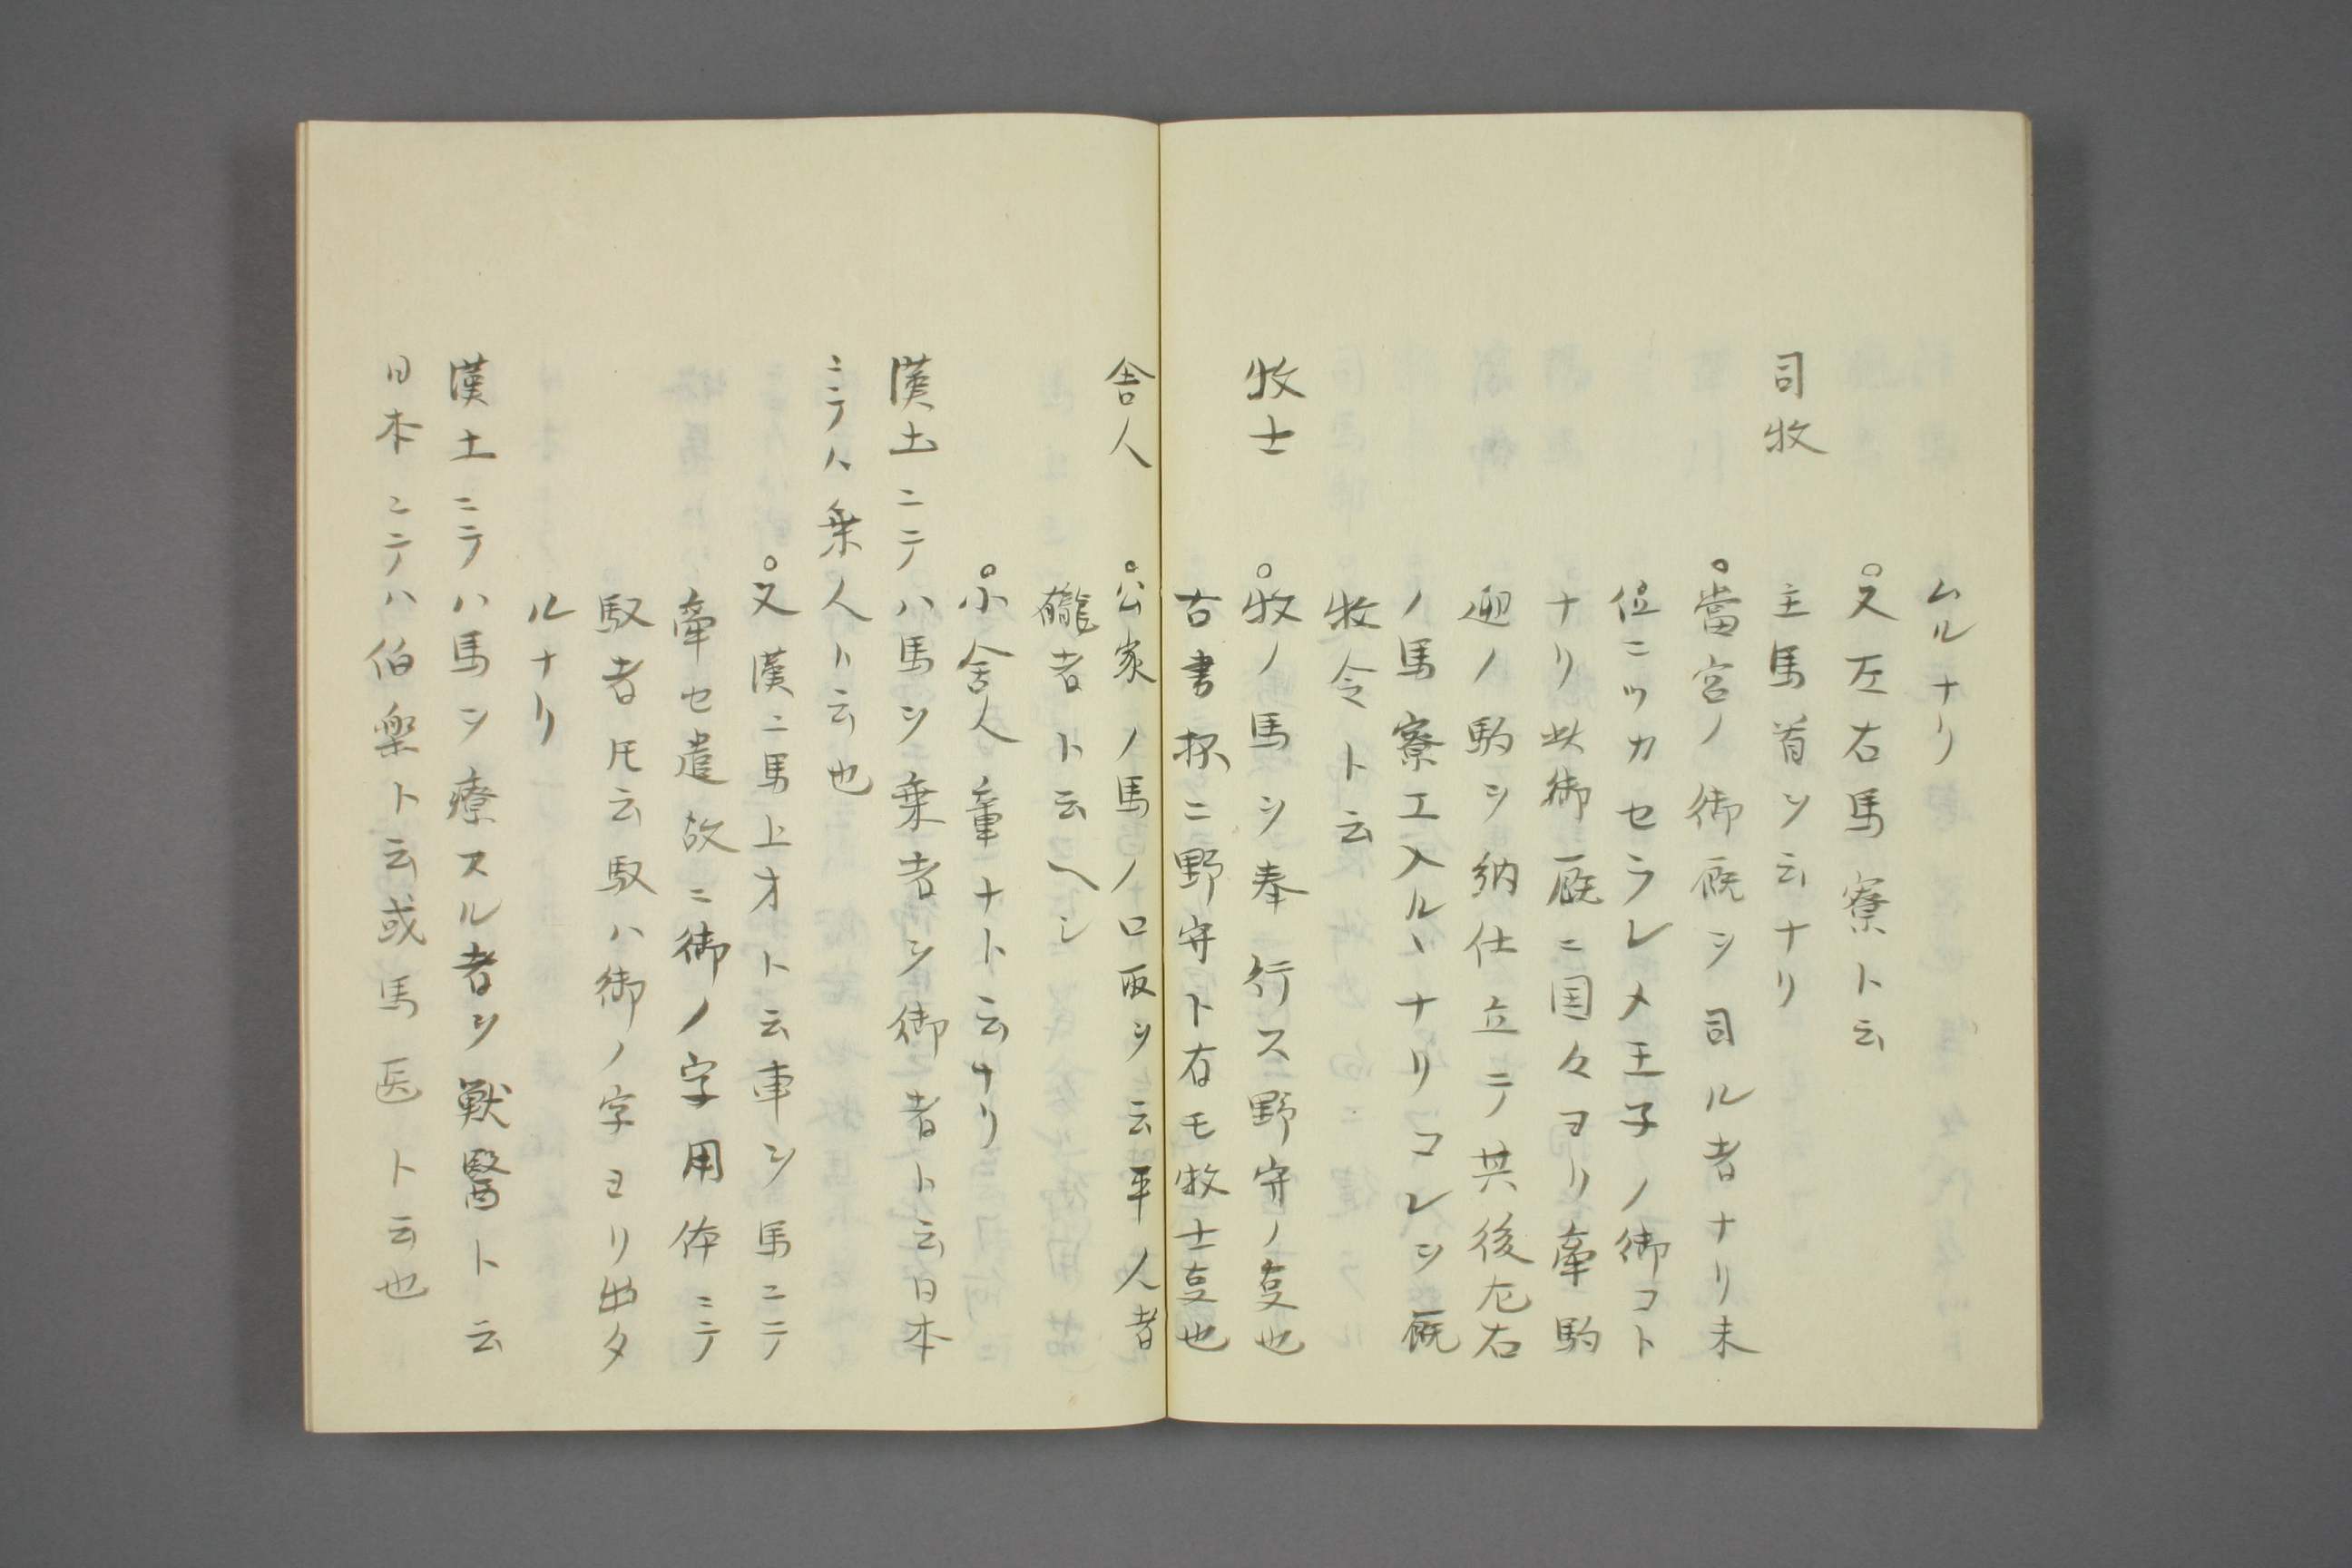 ムルナリ
○又左右馬寮ト云
司牧　主馬首ヲ云ナリ
○當宮ノ御厩ヲ司ル者ナリ未
位ニツカセラレメ王子ノ御コト
ナリ此御厩ニ国々ヨリ牽駒
迎ノ駒ヲ納仕立テ其後左右
ノ馬寮エ入ルヽナリコレヲ厩
牧令ト云
牧士　○牧ノ馬ヲ奉行ス野守ノ叓也
古書抔ニ野守ト有モ牧士叓也
舎人　○公家ノ馬ノ口取ヲ云平人者
龓者ト云ヘシ
○小舍人童ナト云ナリ
漢土ニテハ馬ヲ乗者ヲ御者ト云日本
ニテハ乗人ト云也
○又漢ニ馬上才ト云車ヲ馬ニテ
牽セ遣故ニ御ノ字用体ニテ
馭者𪜈云馭ハ御ノ字ヨリ出タ
ルナリ
漢土ニテハ馬ヲ療スル者ヲ獣醫ト云
日本ニテハ伯楽ト云或馬医ト云也